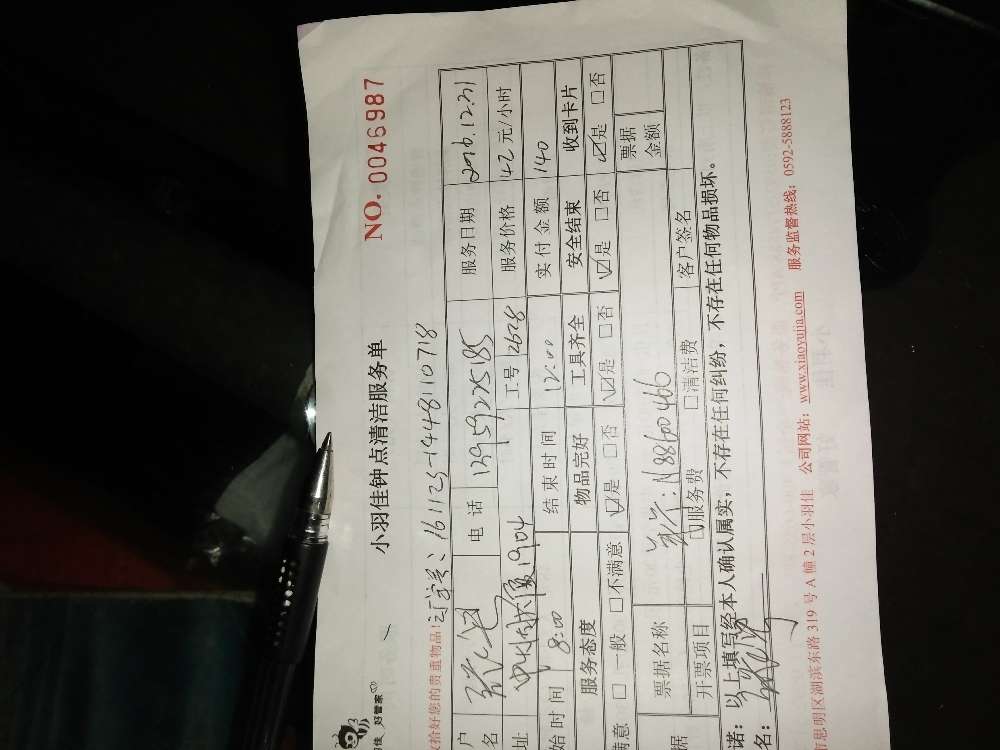 好管家
小羽佳钟点清洁服务单
NO. 0046987
拾好您的贵重物品! 订单号: 161123-14448110718
户名 电话 13959225185 服务日期 2016.12.31
址 1904 工号 2628 服务价格 42元/小时
始时间 8:00 结束时间 12:00 实付金额 140
服务态度 物品完好 工具齐全 安全结束 收到卡片
满意 □一般 □不满意 ☑是 □否 ☑是 □否 ☑是 □否 ☑是 □否
据 票据名称 : N88600466 票据金额
开票项目 □服务费 □清洁费 客户签名
诺: 以上填写经本人确认属实, 不存在任何纠纷, 不存在任何物品损坏。
名:
思明区湖滨东路 319 号 A 幢 2 层小羽佳 公司网站: www.xiaoyujia.com 服务监督热线: 0592-5888123